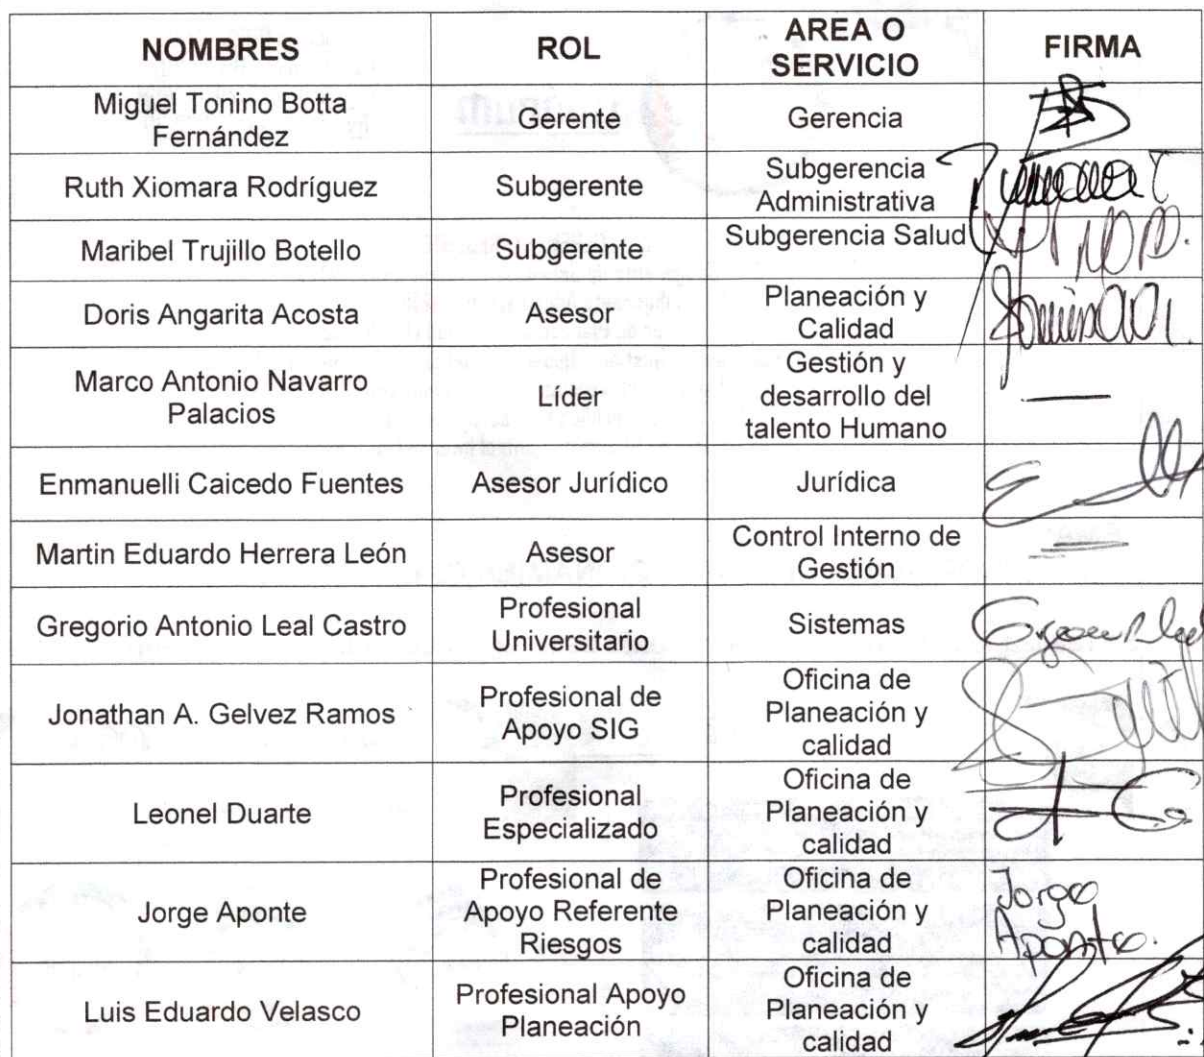 NOMBRES ROL AREA O SERVICIO FIRMA
Miguel Tonino Botta Fernández Gerente Gerencia
Ruth Xiomara Rodríguez Subgerente Subgerencia Administrativa
Maribel Trujillo Botello Subgerente Subgerencia Salud
Doris Angarita Acosta Asesor Planeación y Calidad
Marco Antonio Navarro Palacios Líder Gestión y desarrollo del talento Humano
Enmanuelli Caicedo Fuentes Asesor Jurídico Jurídica
Martin Eduardo Herrera León Asesor Control Interno de Gestión
Gregorio Antonio Leal Castro Profesional Universitario Sistemas
Jonathan A. Gelvez Ramos Profesional de Apoyo SIG Oficina de Planeación y calidad
Leonel Duarte Profesional Especializado Oficina de Planeación y calidad
Jorge Aponte Profesional de Apoyo Referente Riesgos Oficina de Planeación y calidad Jorge Aponte.
Luis Eduardo Velasco Profesional Apoyo Planeación Oficina de Planeación y calidad